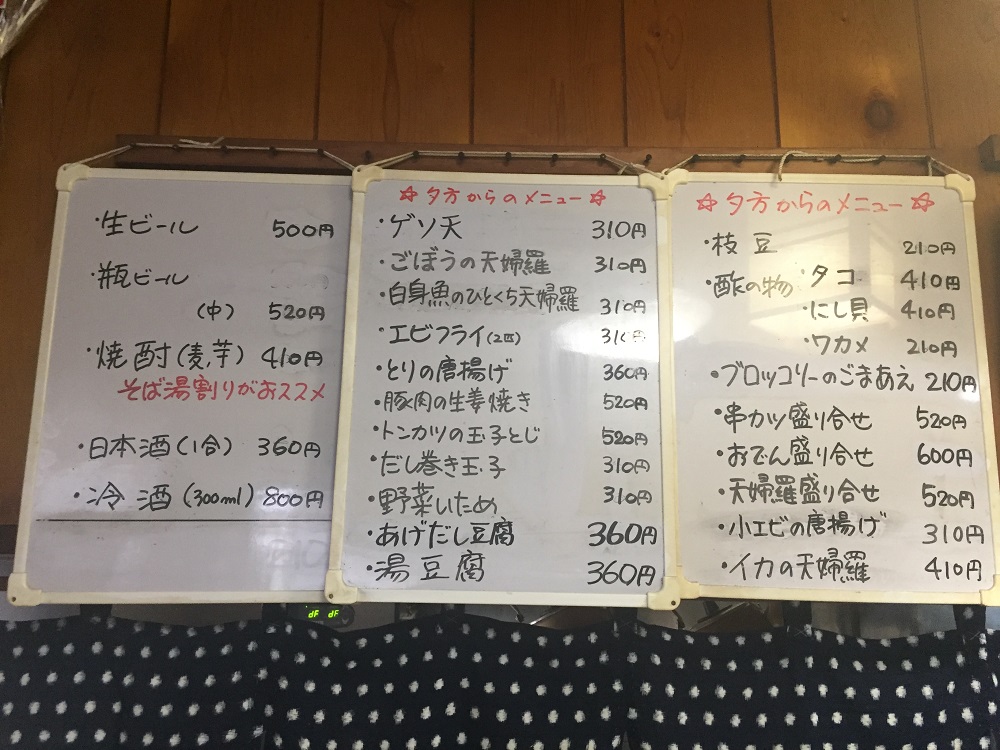 ・生ビール 500円
・瓶ビール
(中) 520円
・焼酎(麦,芋) 410円
そば湯割りがおススメ
・日本酒(1合) 360円
・冷酒(300ml) 800円
☆夕方からのメニュー☆
・ゲソ天 310円
・ごぼうの天婦羅 310円
・白身魚のひとくち天婦羅 310円
・エビフライ(2匹) 310円
・とりの唐揚げ 360円
・豚肉の生姜焼き 520円
・トンカツの玉子とじ 520円
・だし巻き玉子 310円
・野菜いため 310円
・あげだし豆腐 360円
・湯豆腐 360円
☆夕方からのメニュー☆
・枝豆 210円
・酢の物 ・タコ 410円
・にし貝 410円
・ワカメ 210円
・ブロッコリーのごまあえ 210円
・串カツ盛り合せ 520円
・おでん盛り合せ 600円
・天婦羅盛り合せ 520円
・小エビの唐揚げ 310円
・イカの天婦羅 410円